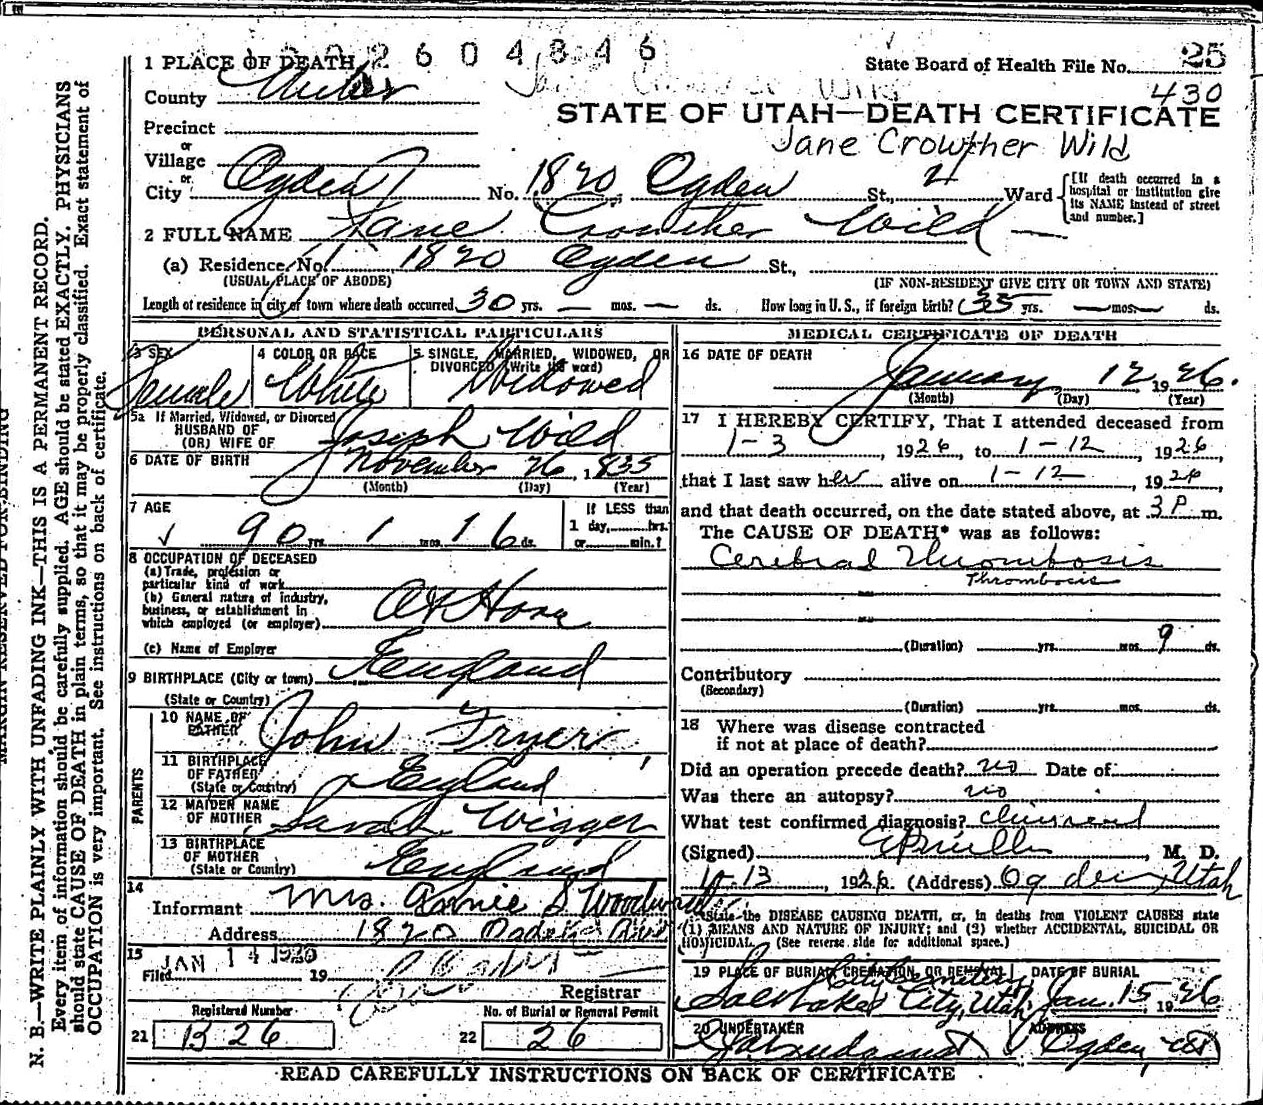 2604846
State Board of Health File No. 25
430
1 PLACE OF DEATH
County Weber
STATE OF UTAH—DEATH CERTIFICATE
Jane Crowther Wild
Precinct
or
Village
or
City Ogden No. 1820 Ogden St., 4 Ward
[If death occurred in a hospital or institution give its NAME instead of street and number.]
2 FULL NAME Jane Crowther Wild
(a) Residence, No. 1820 Ogden St.,
(USUAL PLACE OF ABODE) (IF NON-RESIDENT GIVE CITY OR TOWN AND STATE)
Length of residence in city or town where death occurred 30 yrs. — mos. — ds. How long in U.S., if foreign birth? 35 yrs. — mos. — ds.
PERSONAL AND STATISTICAL PARTICULARS
3 SEX Female
4 COLOR OR RACE White
5 SINGLE, MARRIED, WIDOWED, OR DIVORCED (Write the word) Widowed
5a If Married, Widowed, or Divorced
HUSBAND OF
(OR) WIFE OF Joseph Wild
6 DATE OF BIRTH November 26, 1835
(Month) (Day) (Year)
7 AGE 90 yrs. 1 mos. 16 ds.
If LESS than
1 day, hrs.
or min.?
8 OCCUPATION OF DECEASED
(a) Trade, profession or
particular kind of work
(b) General nature of industry,
business, or establishment in
which employed (or employer) At Home
(c) Name of Employer
9 BIRTHPLACE (City or town) England
(State or Country)
PARENTS
10 NAME OF FATHER John Fryer
11 BIRTHPLACE OF FATHER England
(State or Country)
12 MAIDEN NAME OF MOTHER Sarah Wigger
13 BIRTHPLACE OF MOTHER England
(State or Country)
14
Informant Mrs. Annie S Woodward
Address 1820 Ogden Ave
15
Filed JAN 14 1926 19
Registrar
Registered Number
21 B 26
No. of Burial or Removal Permit
22 26
MEDICAL CERTIFICATE OF DEATH
16 DATE OF DEATH
January 12 1926.
(Month) (Day) (Year)
17 I HEREBY CERTIFY, That I attended deceased from
1-3, 1926, to 1-12, 1926,
that I last saw her alive on 1-12, 1926,
and that death occurred, on the date stated above, at 3 P m.
The CAUSE OF DEATH* was as follows:
Cerebral Thrombosis
Thrombosis
(Duration) yrs. mos. 9 ds.
Contributory
(Secondary)
(Duration) yrs. mos. ds.
18 Where was disease contracted
if not at place of death?
Did an operation precede death? no Date of
Was there an autopsy? no
What test confirmed diagnosis? clinical
(Signed) M. D.
13, 1926 (Address) Ogden, Utah
*State the DISEASE CAUSING DEATH, or, in deaths from VIOLENT CAUSES state
(1) MEANS AND NATURE OF INJURY; and (2) whether ACCIDENTAL, SUICIDAL OR
HOMICIDAL. (See reverse side for additional space.)
19 PLACE OF BURIAL, CREMATION, OR REMOVAL DATE OF BURIAL
City Cemetery
Salt Lake City, Utah Jan. 15, 1926
20 UNDERTAKER ADDRESS
Ogden, Ut
READ CAREFULLY INSTRUCTIONS ON BACK OF CERTIFICATE
MARGIN RESERVED FOR BINDING
N. B.—WRITE PLAINLY WITH UNFADING INK—THIS IS A PERMANENT RECORD.
Every item of information should be carefully supplied. AGE should be stated EXACTLY. PHYSICIANS
should state CAUSE OF DEATH in plain terms, so that it may be properly classified. Exact statement of
OCCUPATION is very important. See instructions on back of certificate.